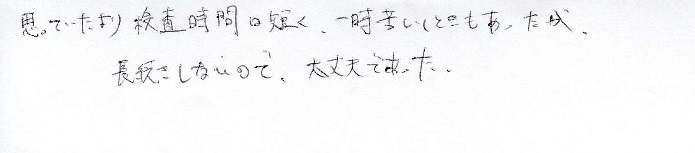 思っていたより検査時間は短く、一時苦しいときもあったが、
長続きしないので、大丈夫であった。